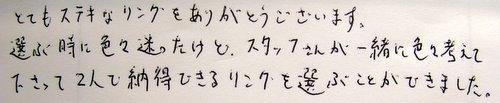 とてもステキなリングをありがとうございます。
選ぶ時に色々迷ったけど、スタッフさんが一緒に色々考えて
下さって2人で納得できるリングを選ぶことができました。